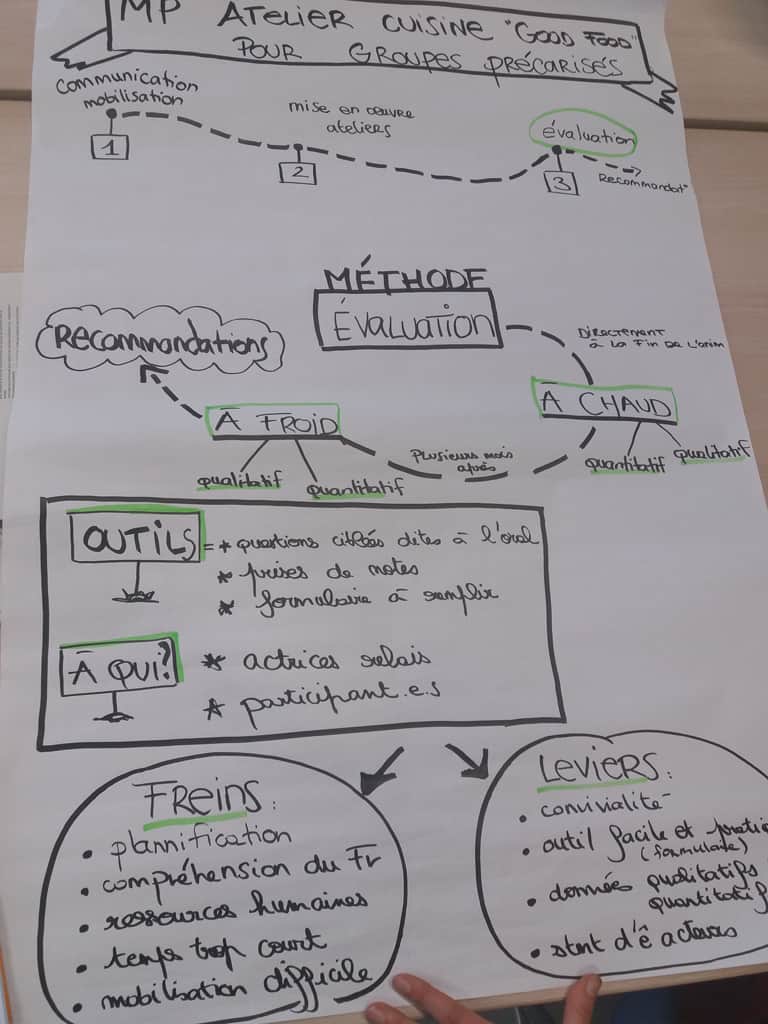 MP ATELIER CUISINE "GOOD FOOD"
POUR GROUPES PRÉCARISÉS
Communication
mobilisation
1
mise en œuvre
ateliers
2
évaluation
3
Recommandat°
MÉTHODE
ÉVALUATION
DIRECTEMENT
à LA FIN DE L'anim
Recommandations
À CHAUD
quantitatif
qualitatif
plusieurs mois
après
À FROID
qualitatif
quantitatif
OUTILS = * questions ciblées dites à l'oral
* prises de notes
* formulaire à remplir
À QUI? * actrices relais
* participant.e.s
FREINS :
• plannification
• compréhension du Fr
• ressources humaines
• temps trop court
• mobilisation difficile
LEVIERS :
• convivialité
• outil facile et
(formulaire)
• données qualitatifs
quantitatifs
• stmt d'ê acteurs